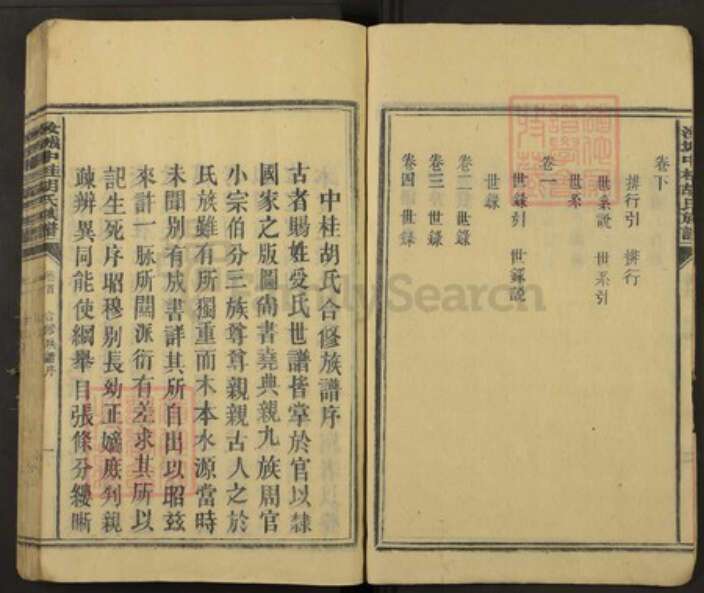 卷下
排行引　排行
世系説　世系引
世系
卷一
世錄引　世錄説
世錄
卷二世錄
卷三世錄
卷四世錄
中桂胡氏合修族譜序
古者賜姓受氏世譜皆掌於官以隸
國家之版圖尚書堯典親九族周官
小宗伯分三族尊尊親親古人之於
氏族雖有所獨重而木本水源當時
未聞別有成書詳其所自出以昭玆
來許一脉所關派衍有差求其所以
記生死序昭穆別長幼正嫡庶判親
疎辨異同能使綱舉目張條分縷晰
中桂胡氏族譜
FamilySearch